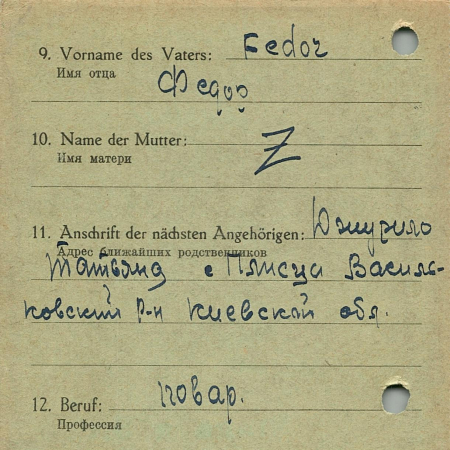 9. Vorname des Vaters: Fedor
Имя отца
Федор
10. Name der Mutter: Z
Имя матери
11. Anschrift der nächsten Angehörigen:
Адрес ближайших родственников
Татьяна с Плисца Василь-
ковский р-н Киевской обл.
12. Beruf: повар.
Профессия